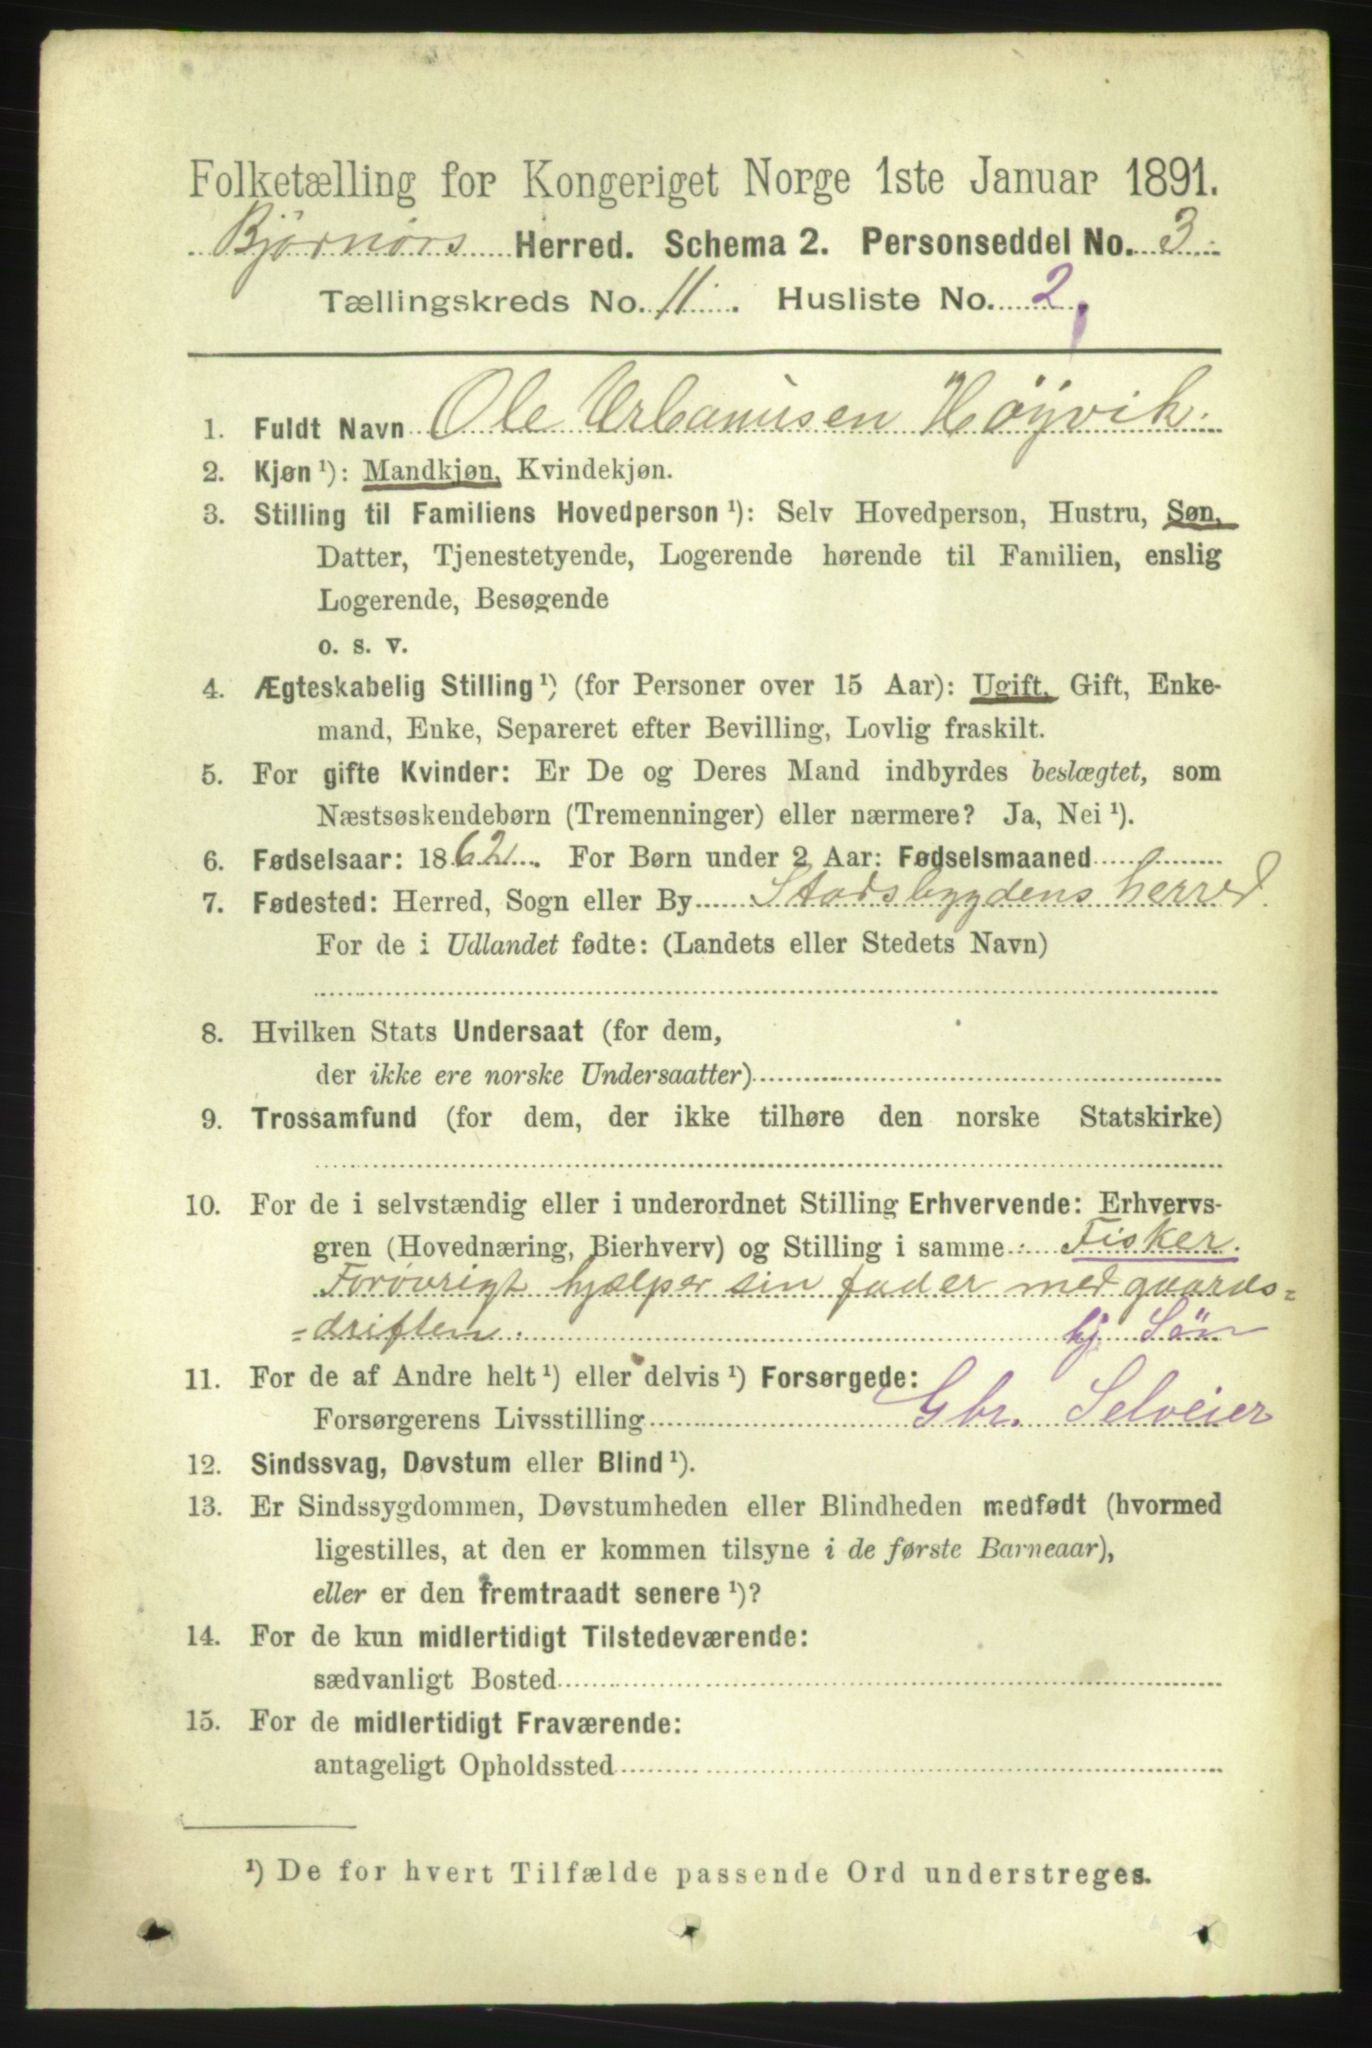 Folketælling for Kongeriget Norge 1ste Januar 1891.
Bjørnørs Herred. Schema 2. Personseddel No. 3.
Tællingskreds No. 11. Husliste No. 2
1. Fuldt Navn Ole Urbanusen Høyvik.
2. Kjøn ¹): Mandkjøn, Kvindekjøn.
3. Stilling til Familiens Hovedperson ¹): Selv Hovedperson, Hustru, Søn,
Datter, Tjenestetyende, Logerende hørende til Familien, enslig
Logerende, Besøgende
o. s. v.
4. Ægteskabelig Stilling ¹) (for Personer over 15 Aar): Ugift, Gift, Enke-
mand, Enke, Separeret efter Bevilling, Lovlig fraskilt.
5. For gifte Kvinder: Er De og Deres Mand indbyrdes beslægtet, som
Næstsøskendebørn (Tremenninger) eller nærmere? Ja, Nei ¹).
6. Fødselsaar: 1862. For Børn under 2 Aar: Fødselsmaaned
7. Fødested: Herred, Sogn eller By Stadsbygdens herred.
For de i Udlandet fødte: (Landets eller Stedets Navn)
8. Hvilken Stats Undersaat (for dem,
der ikke ere norske Undersaatter)
9. Trossamfund (for dem, der ikke tilhøre den norske Statskirke)
10. For de i selvstændig eller i underordnet Stilling Erhvervende: Erhvervs-
gren (Hovednæring, Bierhverv) og Stilling i samme Fisker.
Forøvrigt hjælper sin fader med gaards-
-driften. hj Sön
11. For de af Andre helt ¹) eller delvis ¹) Forsørgede:
Forsørgerens Livsstilling Gbr. Selveier
12. Sindssvag, Døvstum eller Blind ¹).
13. Er Sindssygdommen, Døvstumheden eller Blindheden medfødt (hvormed
ligestilles, at den er kommen tilsyne i de første Barneaar),
eller er den fremtraadt senere ¹)?
14. For de kun midlertidigt Tilstedeværende:
sædvanligt Bosted
15. For de midlertidigt Fraværende:
antageligt Opholdssted
¹) De for hvert Tilfælde passende Ord understreges.